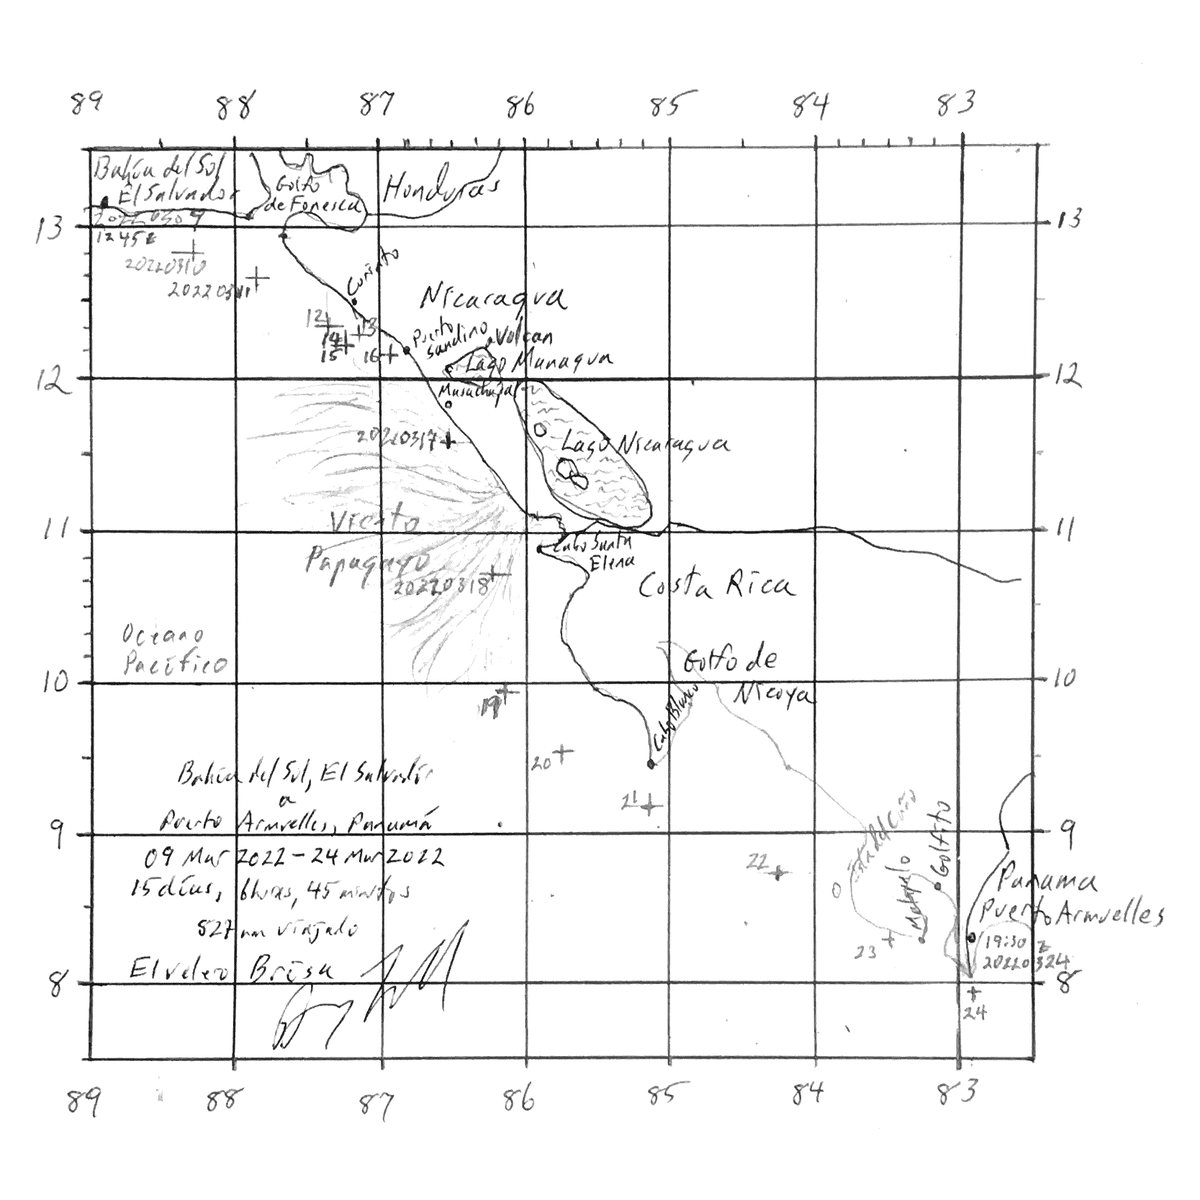 89 88 87 86 85 84 83
Bahia del Sol
El Salvador
20220309
1245z
Golfo
de Fonseca
Honduras
13 13
20220310
20220311
Corinto
Nicaragua
12 13
14
15 16
Puerto
Sandino
Volcan
Lago Managua
12 12
Masachapa
20220317
Lago Nicaragua
11 11
Viento
Papagayo
Cabo Santa
Elena
20220318
Costa Rica
Oceano
Pacifico
Golfo de
Nicoya
10 10
19
Cabo Blanco
20
21
Bahia del Sol, El Salvador
a
Puerto Armuelles, Panamá
9 9
09 Mar 2022 - 24 Mar 2022
15 días, 6 horas, 45 minutos
527 nm viajado
El velero Brisa
22
Matapalo
Golfito
Panama
Puerto Armuelles
23
19:30 z
20220324
8 8
24
89 88 87 86 85 84 83